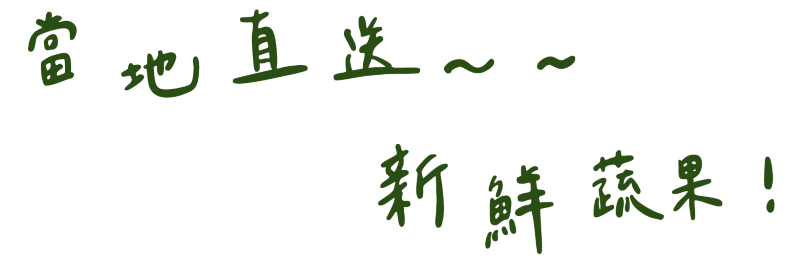 當地直送~~
新鮮蔬果!